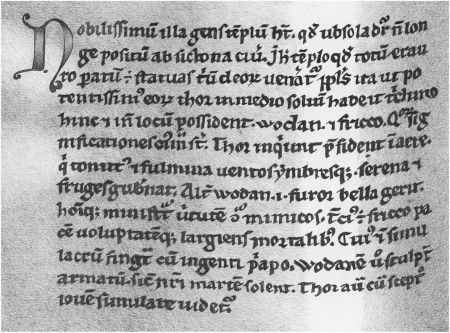 Nobilissimū illa gens tēplū ht̄. qđ ubsola dr̄ n̄ lon
ge positū ab sictona ciuī. Jn̄ tēplo qđ totū ex au
ro paratū ÷ statuas t'ū deoꝝ uenāt̄ ppls ita ut po
tentissim' eoꝝ thor in medio soliū habeat t'clinio
hinc & in̄ locū possident. wodan. & fricco. Qoꝝ sig
nificationes st̄. Thor inquiunt p̄sident in aere.
q' tonitr' & fulmina uentos ymbresq; serena &
fruges gubnat. Alt' wodan .i. furor bella gerit.
hoīq; ministrat uirtutē inimicos. t'ci' ÷ fricco pa
cē uoluptatēq; largiens mortalib'. Cui' simu
lacrū fingūt cū ingenti p'apo. Wodanē u' sculpt̄
armatū. sic n̄ri martē solent. Thor aū cū scept'
iouē simulare uidet'.